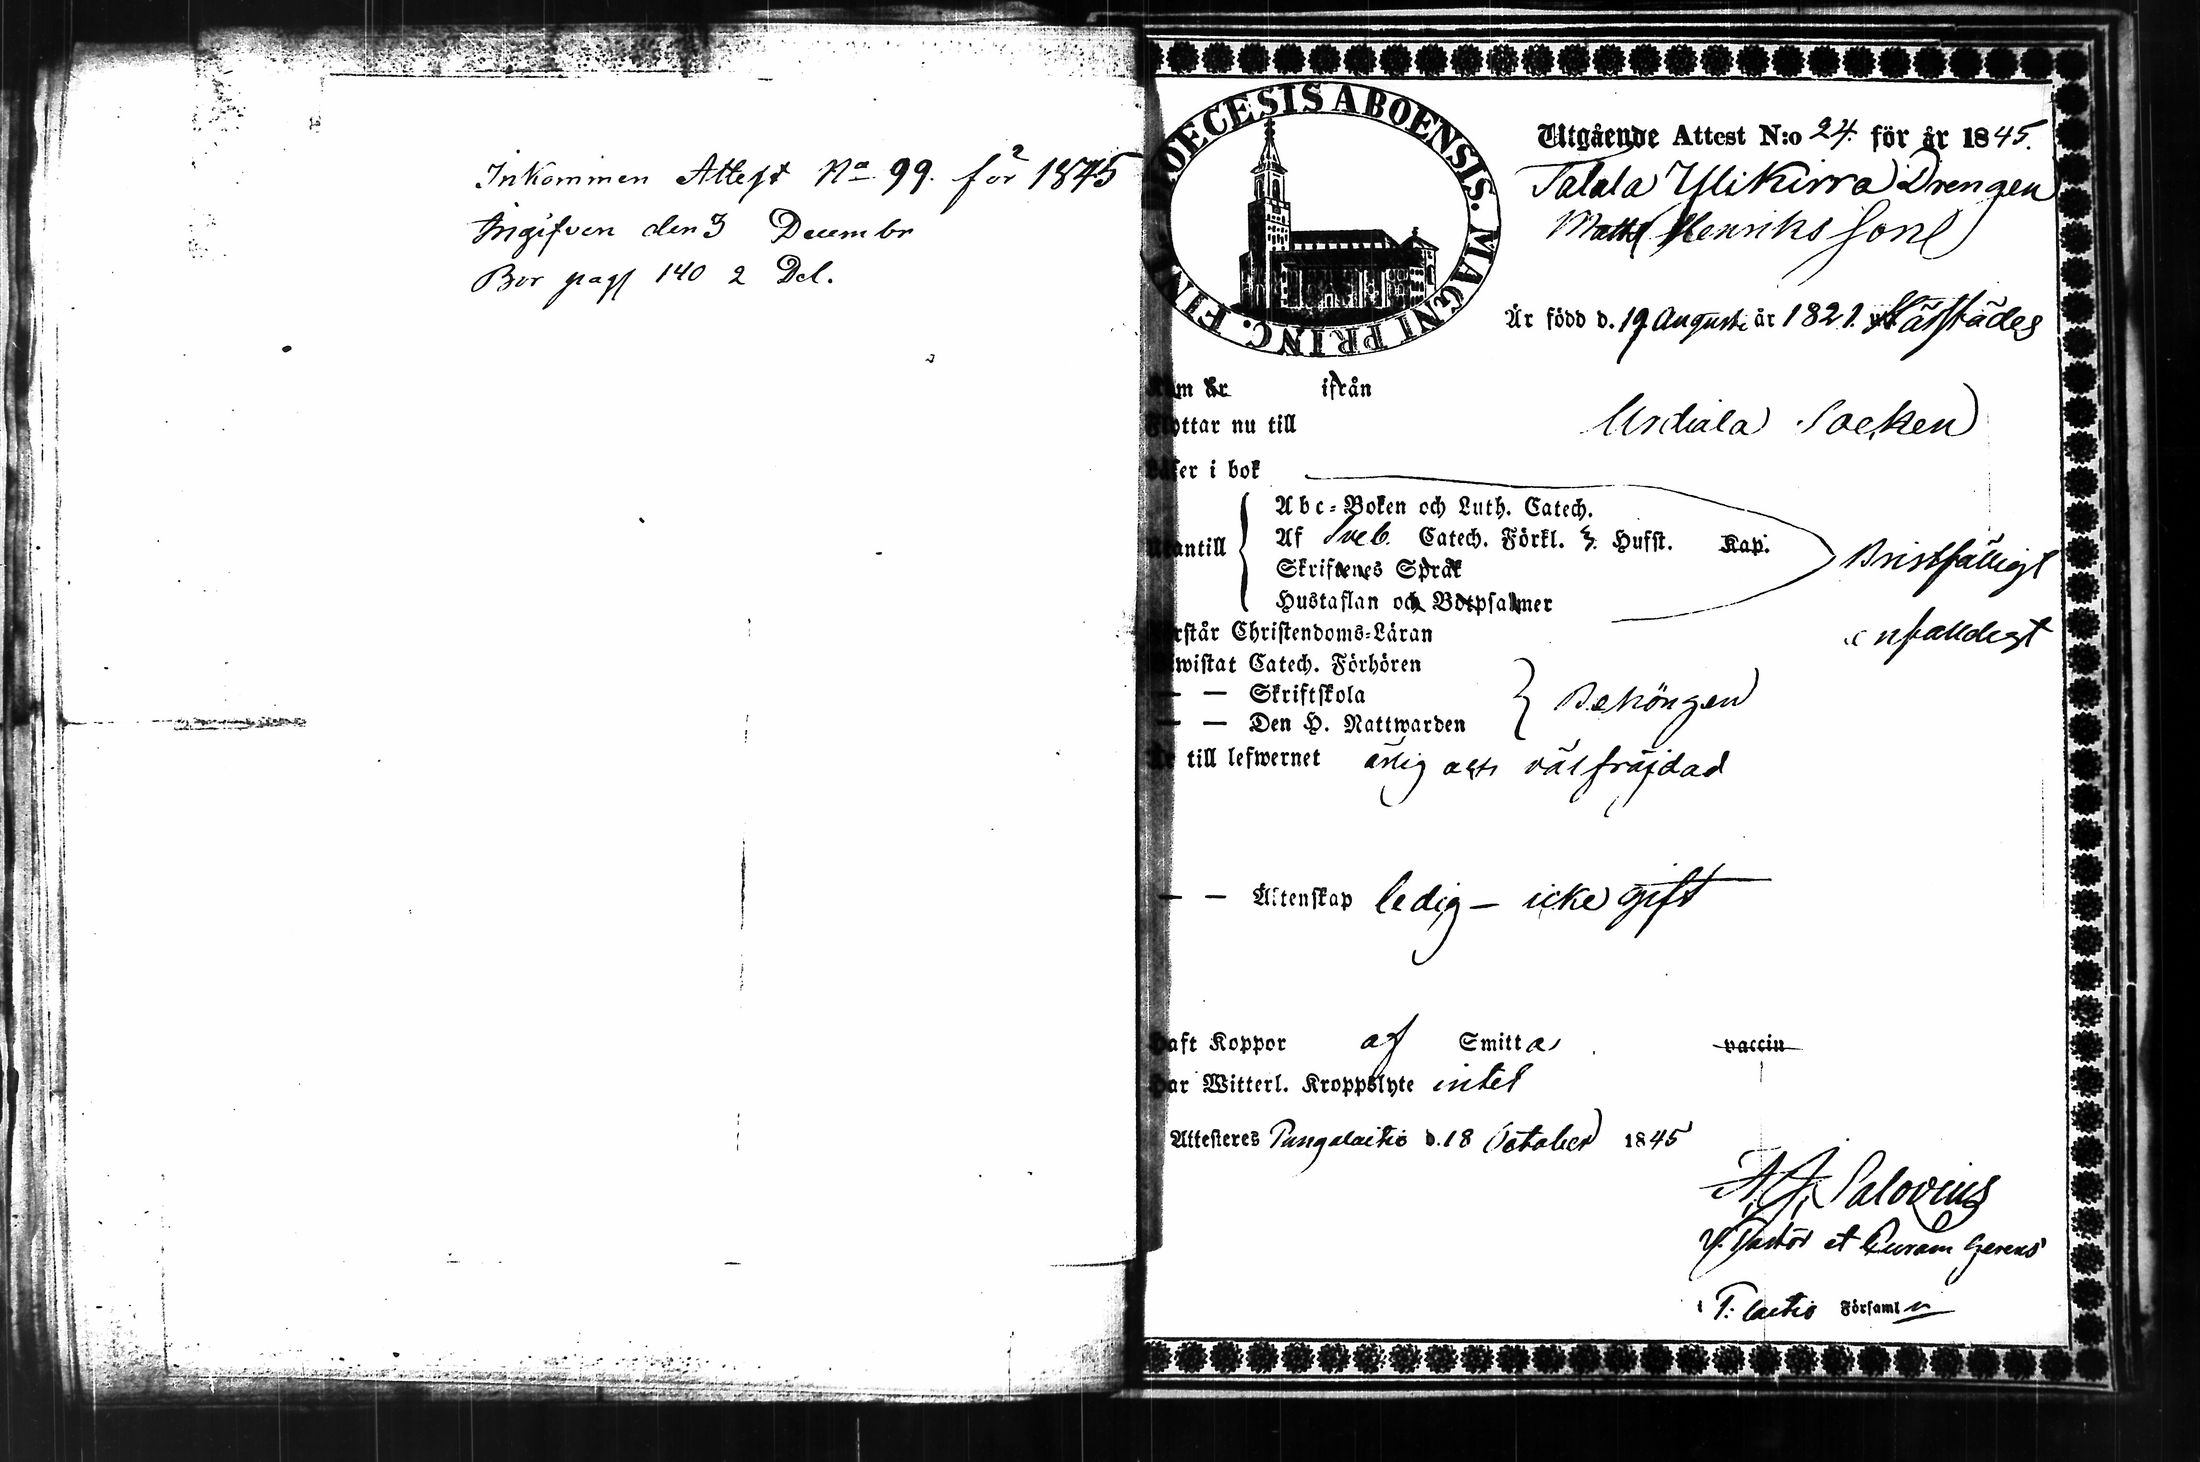 Inkommen Attest No 99. för 1845
Ingifven den 3 December
Bor pag 140 2 Del.
DIOECESIS ABOENSIS. MAGNI PRINC. FINL.
Utgående Attest N:o 24. för år 1845.
Talala Ylikirra Drengen
Matts Henriksson
Är född d. 19 Augusti år 1821. härstädes
Kom år ifrån
Flyttar nu till Urdiala Socken
Läser i bok
Abc-Boken och Luth. Catech.
Utantill Af Sveb. Catech. Förkl. 3. Hufst. Kap. Bristfälligt
Skriftenes Språk
Hustaflan och Botpsalmer
Förstår Christendoms-Läran enfalldigt
Biwistat Catech. Förhören
— — Skriftskola Behörigen
— — Den H. Nattwarden
Är till lefwernet ärlig och välfräjdad
— — Äktenskap ledig – icke gift
Haft Koppor af Smitta vaccin
Har Witterl. Kroppslyte intet
Attesteres Pungalaitio d. 18 October 1845
Salovius
V. Pastor et Curam Gerens
i P: laitio Församl